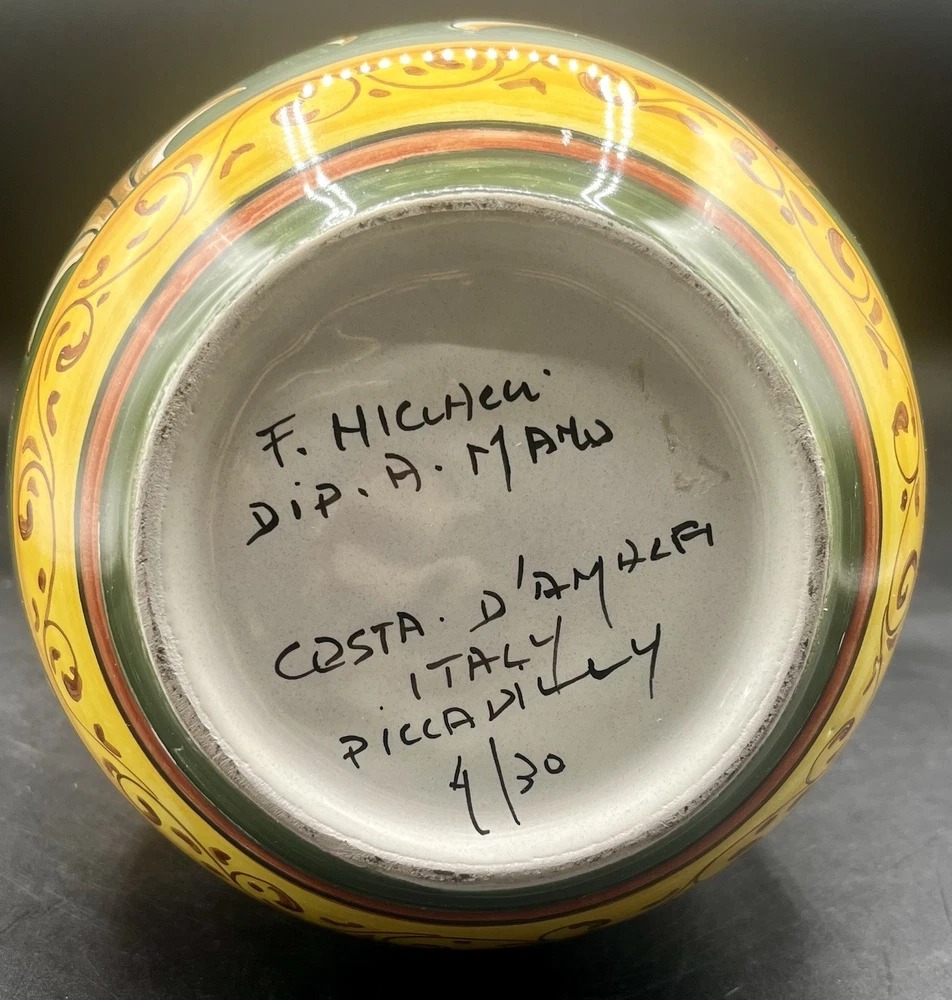 F. MICCHELI
DIP. A. MANO
COSTA. D'AMALFI
ITALY
PICCADILLY
4/30